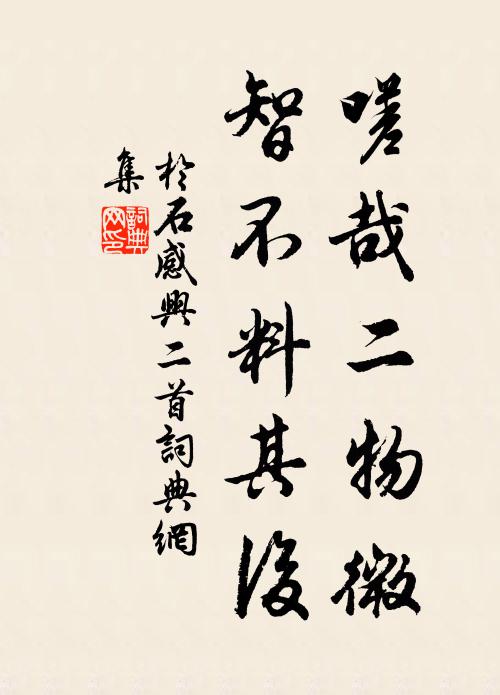 嗟哉二物微
智不料其後
於石感興二首詞典網
集
詞典網印